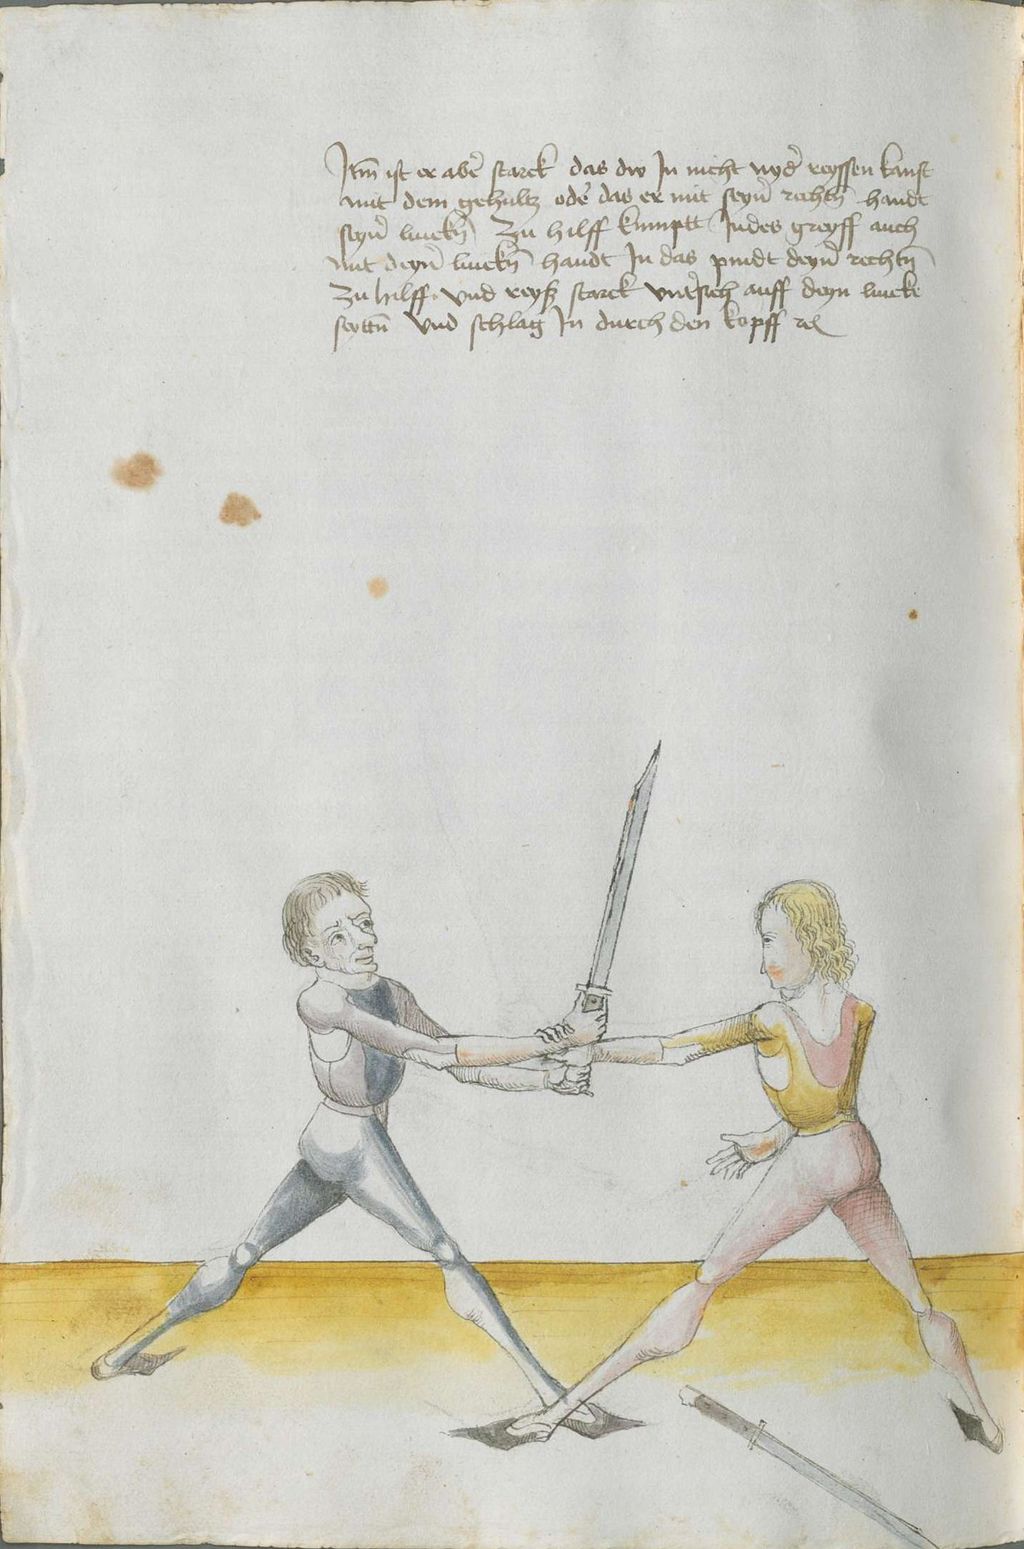 Itm̄ ist er abe᷑ starck das dw In nicht nyd᷑ reyssen kanst
mit dem gehultz ode᷑ das er mit seyn᷑ rechtn̄ handt
seyn᷑ linckn̄ Zu hilff kumptt Indes greyff auch
mit deyn᷑ linckn̄ handt In das pindt deyn᷑ rechtn̄
Zu hilff. Vnd reyß starck vnt᷑sich auff deyn lincke
seyttn̄ Vnd schlag In durch den kopff